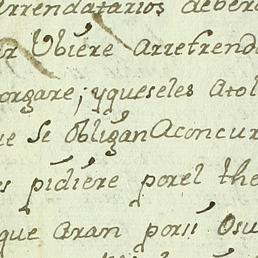 Arrendatarios deber
r Ubiere Arrefrend
orgare; yqueseles Atol
ue Se obligan Aconcur
es pidiere porel the
que aran porsi Osu